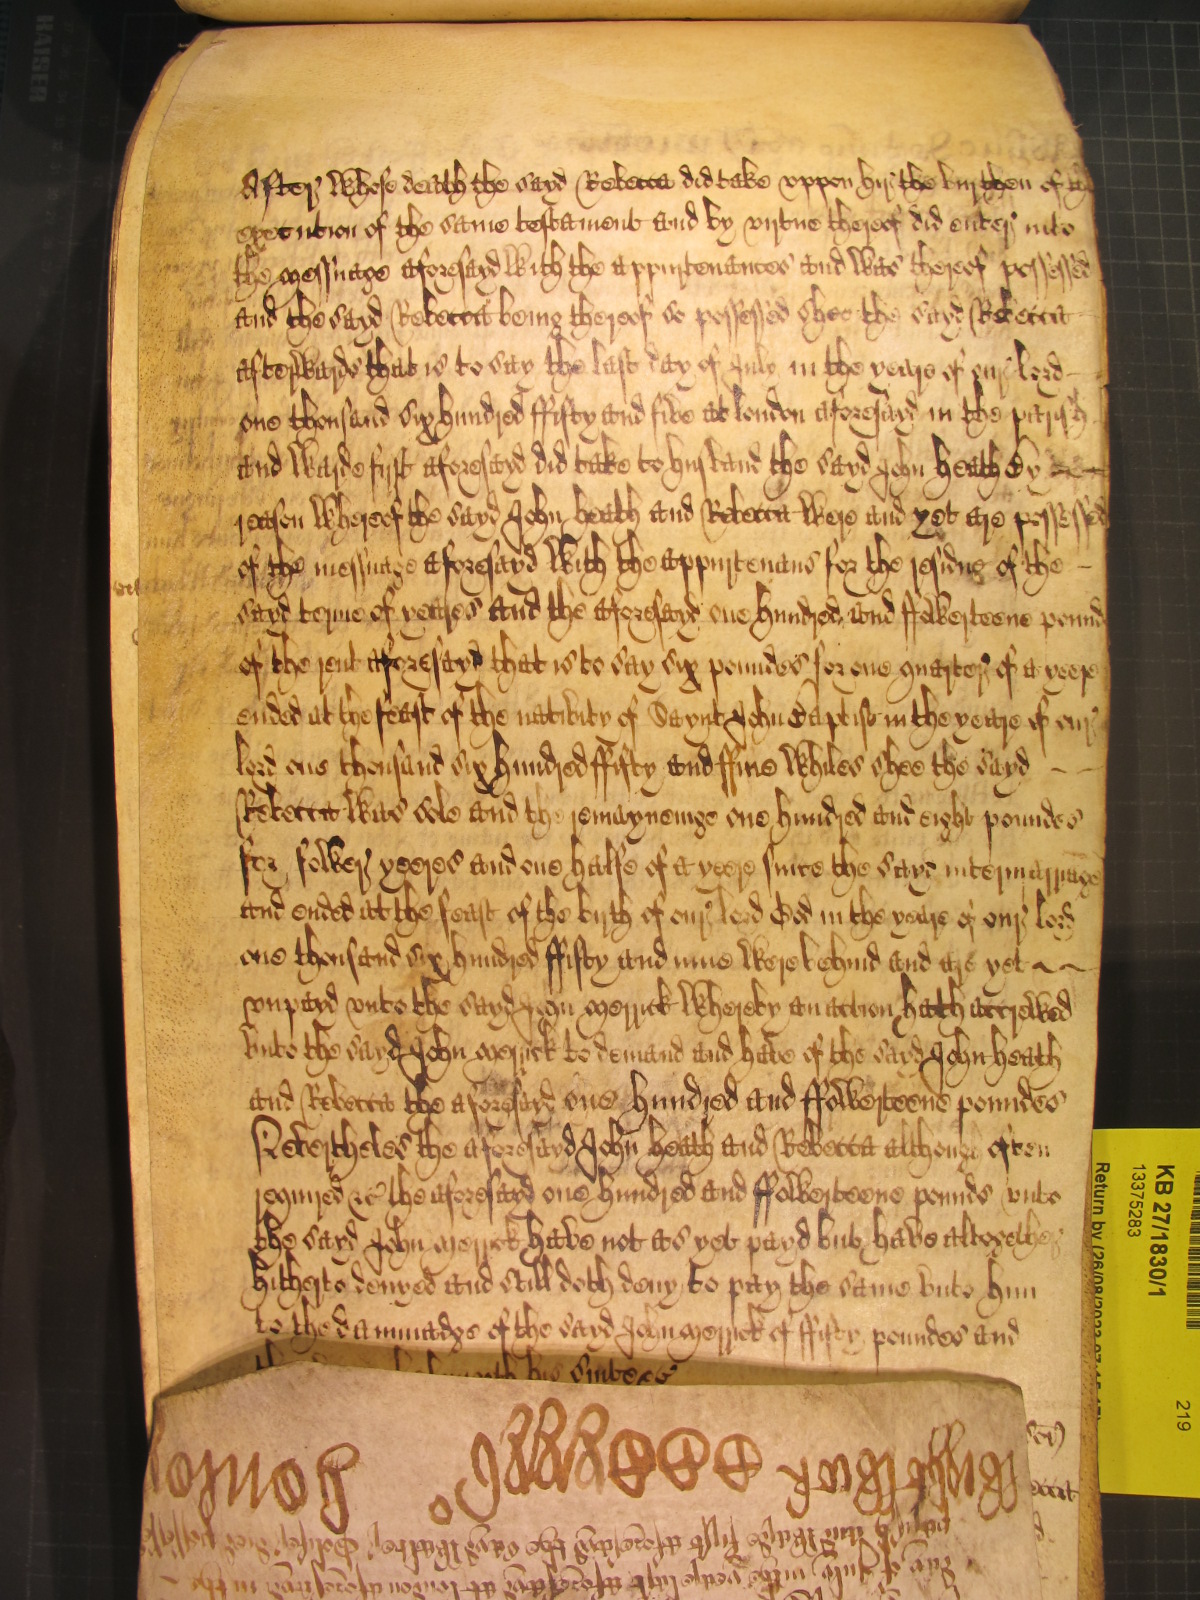 After whose death the sayd Rebecca did take uppon hir the burthen of the
execution of the same testament and by virtue thereof did enter into
the messuage aforesayd with the appurtenances and was thereof possessed
and the sayd Rebecca being thereof so possessed shee the sayd Rebecca
afterwards that is to say the last day of July in the yeare of our lord
one thousand six hundred ffifty and five at london aforesayd in the parish
and warde first aforesayd did take to husband the sayd John heath By
reason whereof the sayd John heath and Rebecca were and yet are possessed
of the messuage aforesayd with the appurtenans for the residue of the
sayd terme of yeares And the aforesayd one hundred and ffowerteene pound
of the rent aforesayd that is to say six poundes for one quarter of a yeere
ended at the feast of the nativity of Saynt John Baptist in the yeare of our
lord one thousand six hundred ffifty and ffive whiles shee the sayd
Rebecca was sole and the remayneinge one hundred and eight poundes
for fower yeeres and one halfe of a yeere since the sayd intermarriage
and ended at the feast of the birth of our lord God in the yeare of our lord
one thousand six hundred ffifty and nine were behind and are yet
unpayd unto the sayd John Merrick whereby an action hath accrewed
unto the sayd John Merrick to demand and have of the sayd John heath
and Rebecca the aforesayd one hundred and ffowerteene poundes
Nevertheles the aforesayd John heath and Rebecca although often
required &c the aforesayd one hundred and ffowerteene pounds unto
the sayd John Merrick have not as yet payd but have altogether
hitherto denyed and still doth deny to pay the same unto him
to the dammadge of the sayd John Merrick of ffifty poundes and
his suite &c
KAISER
KB 27/1830/1
13375283
219
Return by